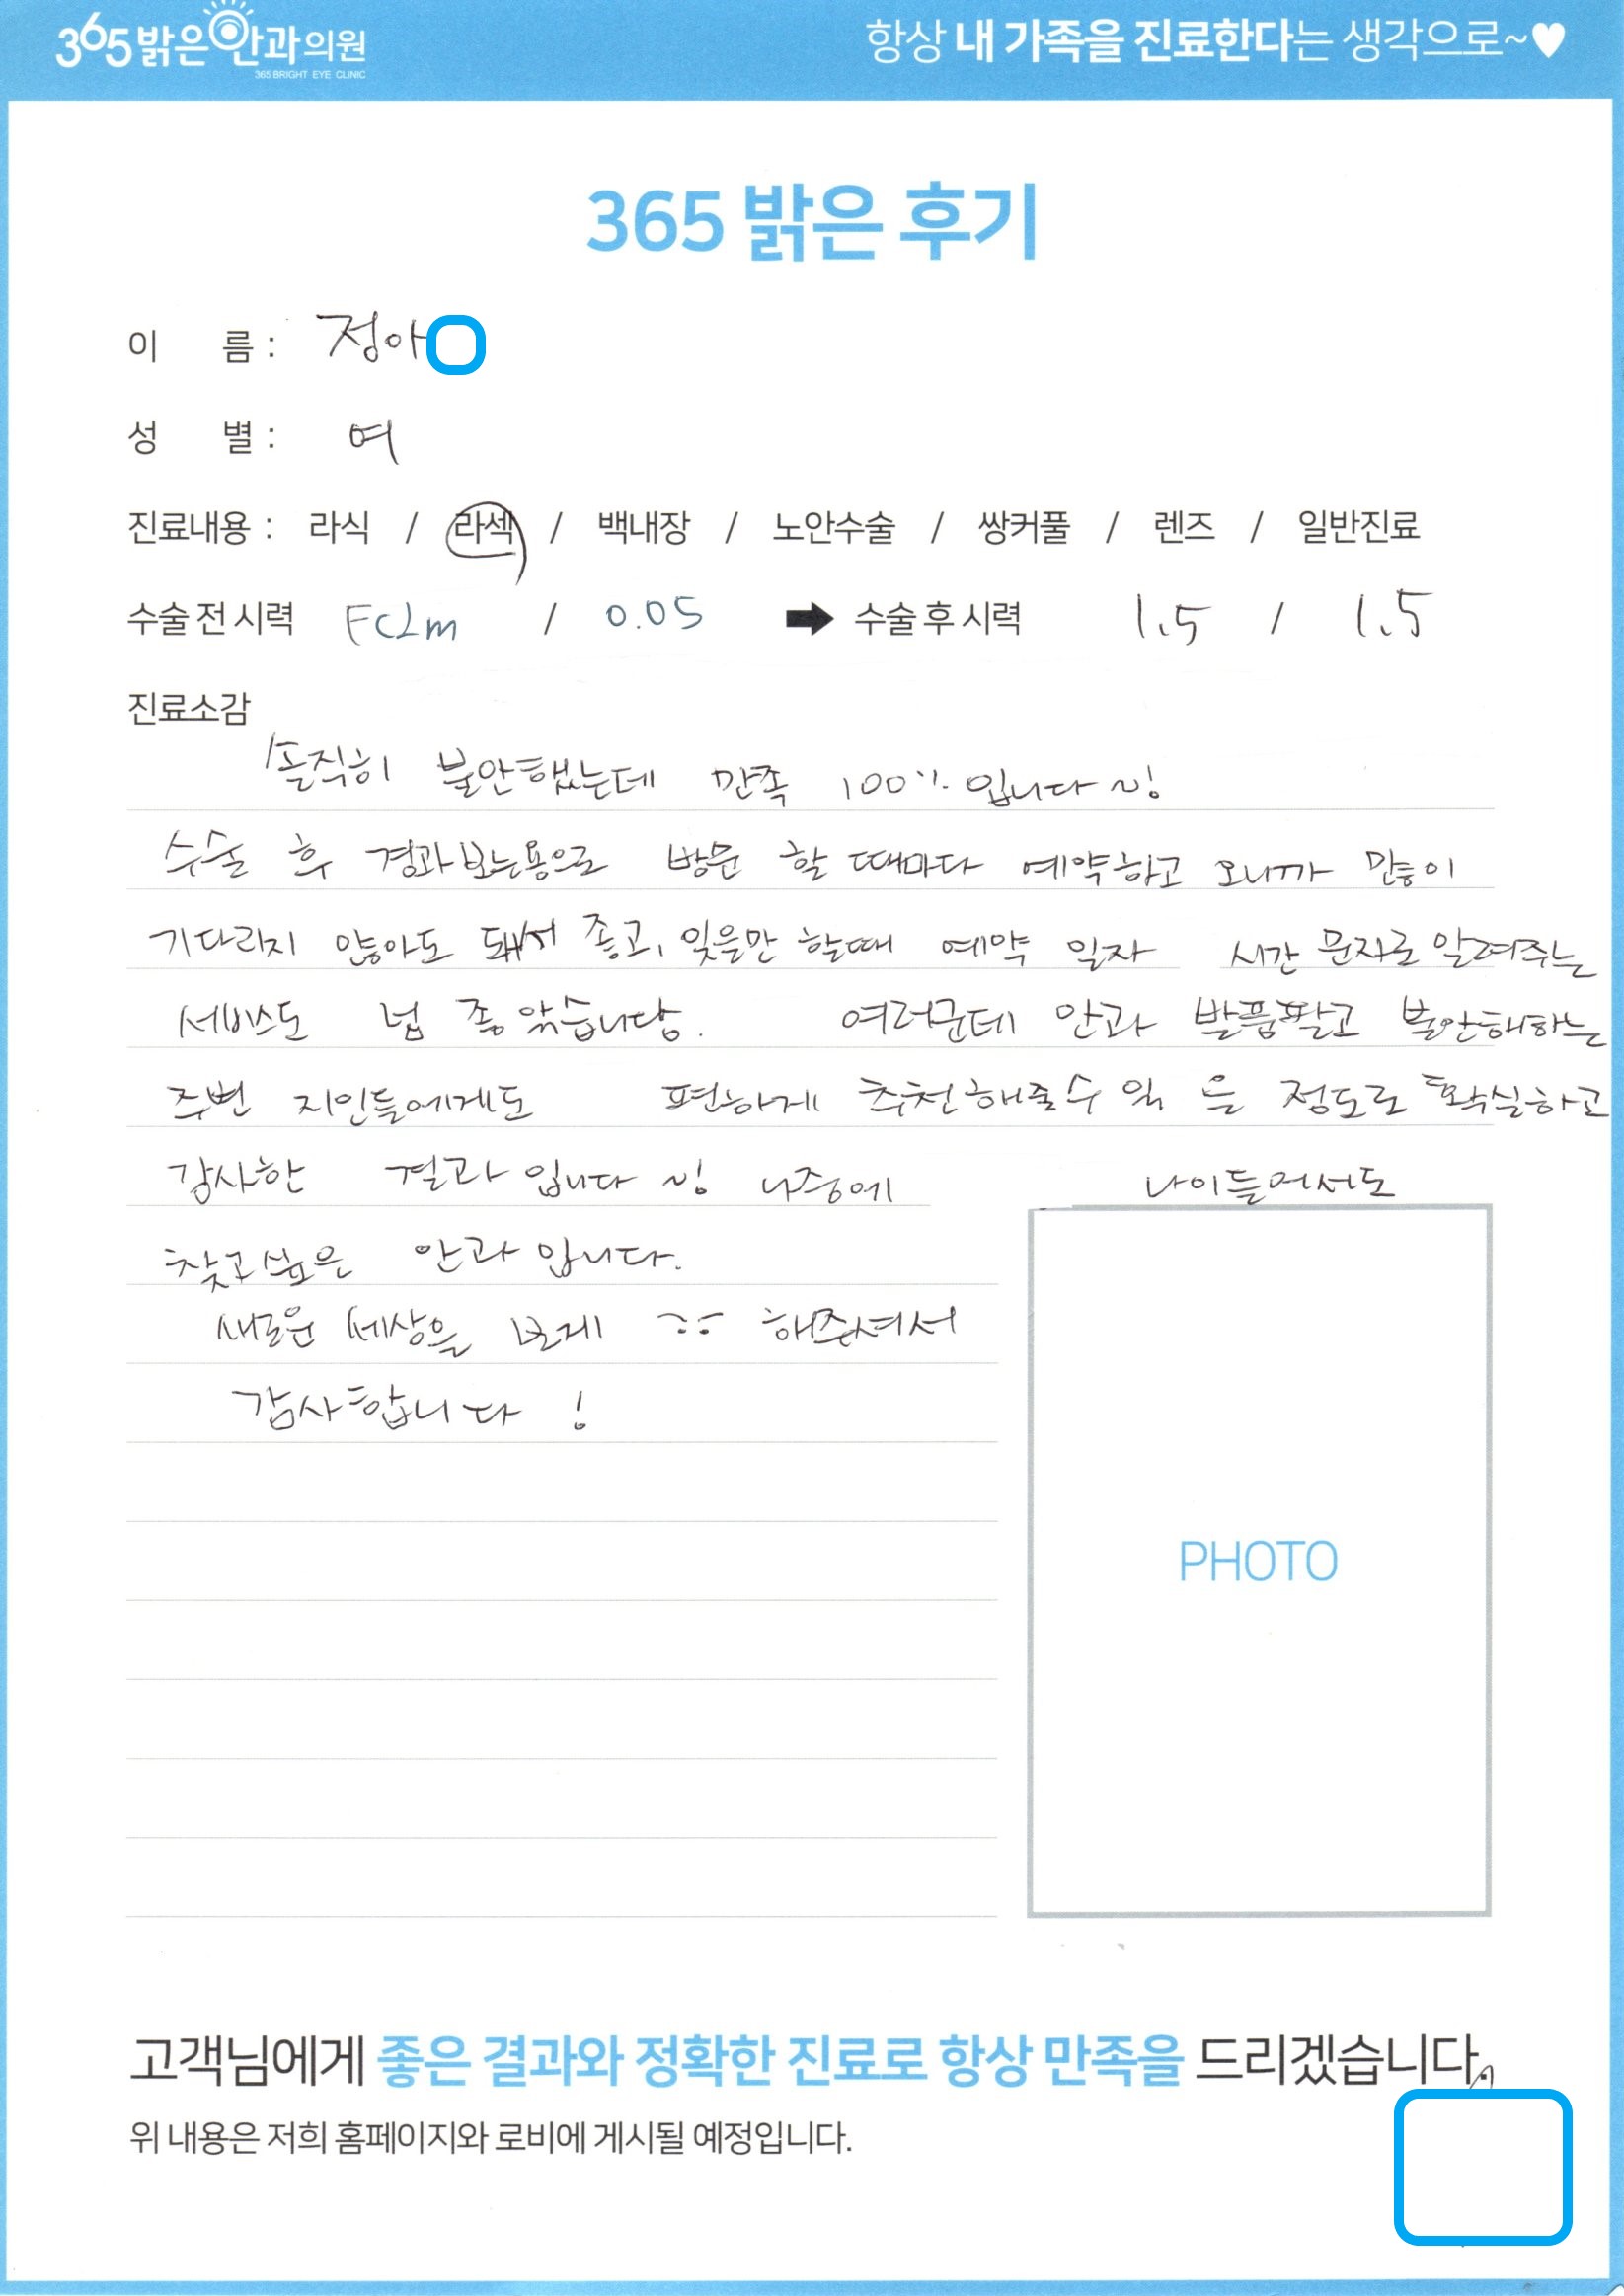 365 밝은안과의원
365 BRIGHT EYE CLINIC
항상 내 가족을 진료한다는 생각으로~♥
365 밝은 후기
이 름 : 정아
성 별 : 여
진료내용 : 라식 / 라섹 / 백내장 / 노안수술 / 쌍커풀 / 렌즈 / 일반진료
수술 전 시력 FC2m / 0.05 ➡ 수술 후 시력 1.5 / 1.5
진료소감
솔직히 불안했는데 만족 100% 입니다~!
수술 후 경과보는용으로 방문 할 때마다 예약하고 오니까 많이
기다리지 않아도 돼서 좋고, 잊을만 할때 예약 일자 시간 문자로 알려주는
서비스도 넘 좋았습니당. 여러군데 안과 발품팔고 불안해하는
주변 지인들에게도 편하게 추천해줄수 있을 정도로 확실하고
감사한 결과 입니다~! 나중에 나이들어서도
찾고싶은 안과 입니다.
새로운 세상을 보게 해주셔서
감사합니다 !
PHOTO
고객님에게 좋은 결과와 정확한 진료로 항상 만족을 드리겠습니다.
위 내용은 저희 홈페이지와 로비에 게시될 예정입니다.